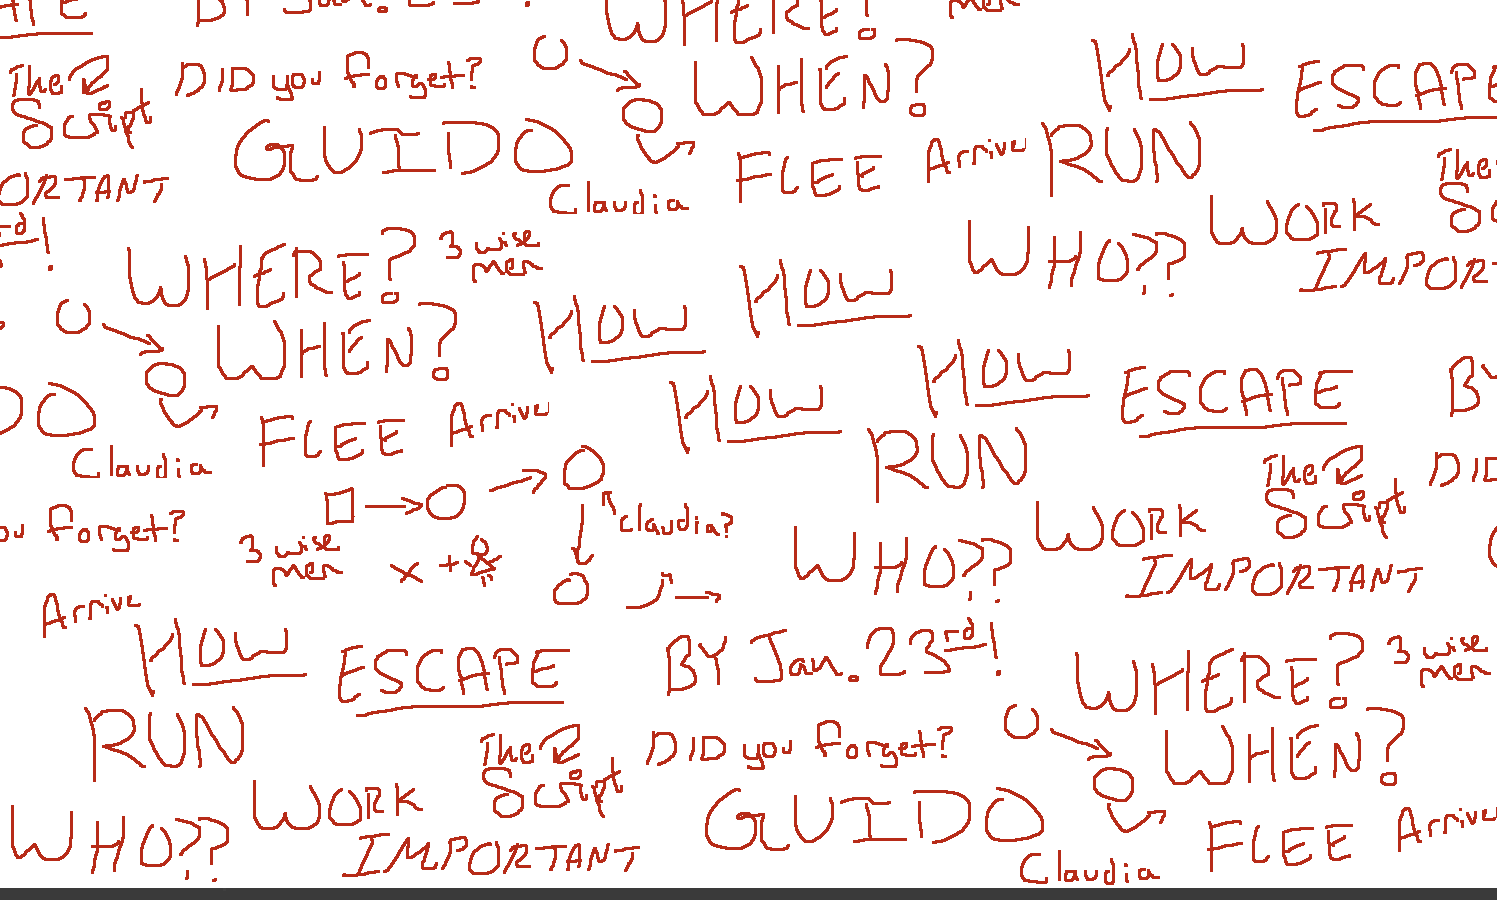 APE
BY Jan. 23rd!
WHERE?
men
The
Script
DID you forget?
WHEN?
HOW
ESCAPE
GUIDO
Claudia
FLEE
Arrive
RUN
The
ORTANT
rd!
WHERE?
3 wise
men
WHO??
WORK
IMPORT
WHEN?
HOW
HOW
DO
Claudia
FLEE
Arrive
HOW
HOW
ESCAPE
BY
RUN
The
Script
DID
ou forget?
3 wise
men
x +
Claudia?
WHO??
WORK
IMPORTANT
Arrive
HOW
ESCAPE
BY Jan. 23rd!
WHERE?
3 wise
men
RUN
The
Script
DID you forget?
WHEN?
WHO??
WORK
IMPORTANT
GUIDO
Claudia
FLEE
Arrive